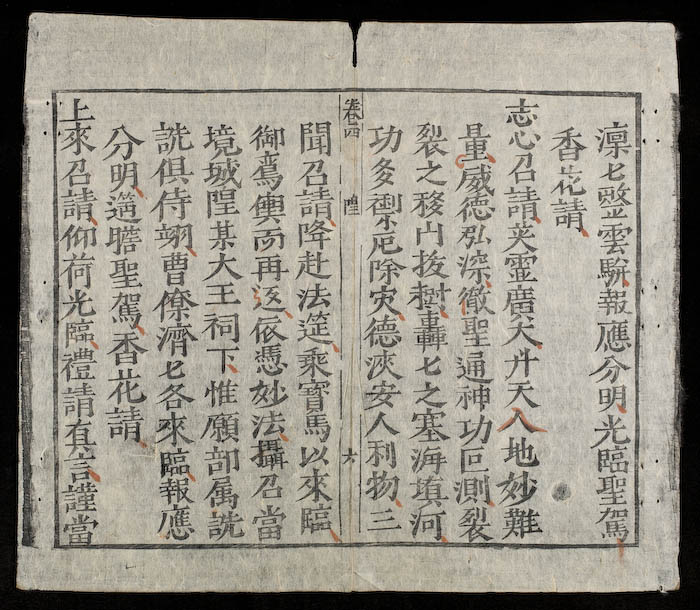 凛匕整雲駢報應分明光臨聖駕
香花請
志心召請英霊廣大升天入地妙難
量威德弘深徹聖通神功叵測裂
裂之移山拔樹轟匕之塞海填河
功多禦厄除灾德浹安人利物三
卷四 隍 六
聞召請降赴法筵乘寶馬以來臨
御鸞輿而再返依憑妙法攝召當
境城隍某大王祠下惟願部属詵
詵俱侍翊曹僚濟匕各來臨報應
分明遥瞻聖駕香花請
上來召請仰荷光臨禮請有言謹當